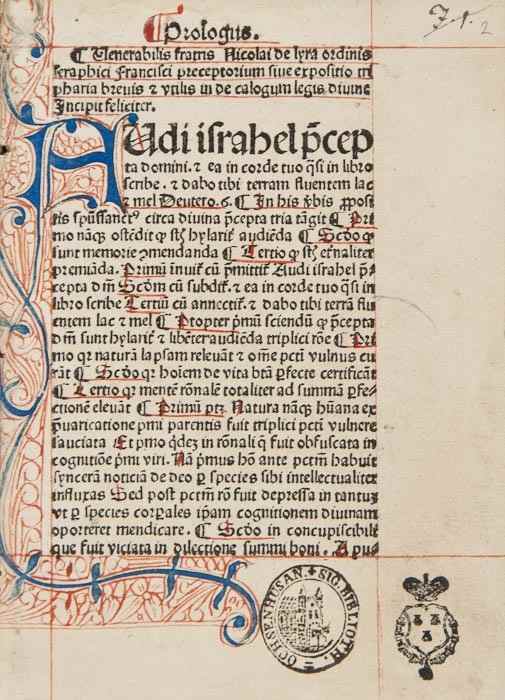 ¶ Prologus.
71. 2
¶ Uenerabilis fratris Nicolai de lyra ordinis
seraphici Francisci preceptorium siue expositio tri
pharia breuis ⁊ vtilis in de calogum legis diuine
Incipit feliciter.
AUdi israhel p̄cep
ta domini. ⁊ ea in corde tuo q̄si in libro
scribe. ⁊ dabo tibi terram fluentem lac
⁊ mel Deutero. 6. ¶ In his v̓bis ꝓposi
tis sp̄ussanct⁹ circa diuina p̄cepta tria tāgit ¶ Pri
mo nāꝗ ostēdit ꝙ st̄ hylarit̓ audiēda ¶ Scḋo ꝙ
sunt memorie ↄmendanda ¶ Tertio ꝙ st̄ et̓naliter
premiāda. Primū īnuit̓ cū p̄mittit̓ Audi israhel p̄-
cepta dn̄i Scḋm cū subdit̓. ⁊ ea in corde tuo q̄si in
libro scribe Tertiū cū annectit̓. ⁊ dabo tibi terrā flu
entem lac ⁊ mel ¶ Propter p̄mū sciendū ꝙ p̄cepta
dn̄i sunt hylarit̓ ⁊ libēter audiēda triplici rōe ¶ Pri
mo qꝛ naturā lapsam releuāt ⁊ om̄e pctī vulnus cu
rāt ¶ Scḋo qꝛ hoīem de vita btā ꝑfecte certificāt
¶ Tertio qꝛ mentē rōnalē totaliter ad summā ꝑfe-
ctionē eleuāt ¶ Primū ptꝫ Natura nāꝗ hūana ex
p̄uaricatione pmi parentis fuit triplici pctī vulnere
sauciata Et pmo qdeꝫ in rōnali q̄ fuit obfuscata in
cognitiōe pmi viri. Nā p̄mus hō ante pctm̄ habuit
syncerā noticiā de deo ꝑ species sibi intellectualiter
influxas Sed post pctm̄ rō fuit depressa in tantuꝫ
vt ꝑ species corꝑales ip̄am cognitionem diuinam
oporteret mendicare. ¶ Scḋo in concupiscibili
que fuit viciata in dilectione summi boni. A pus
OCHSENHUSAN. + SIG. BIBLIOTH.